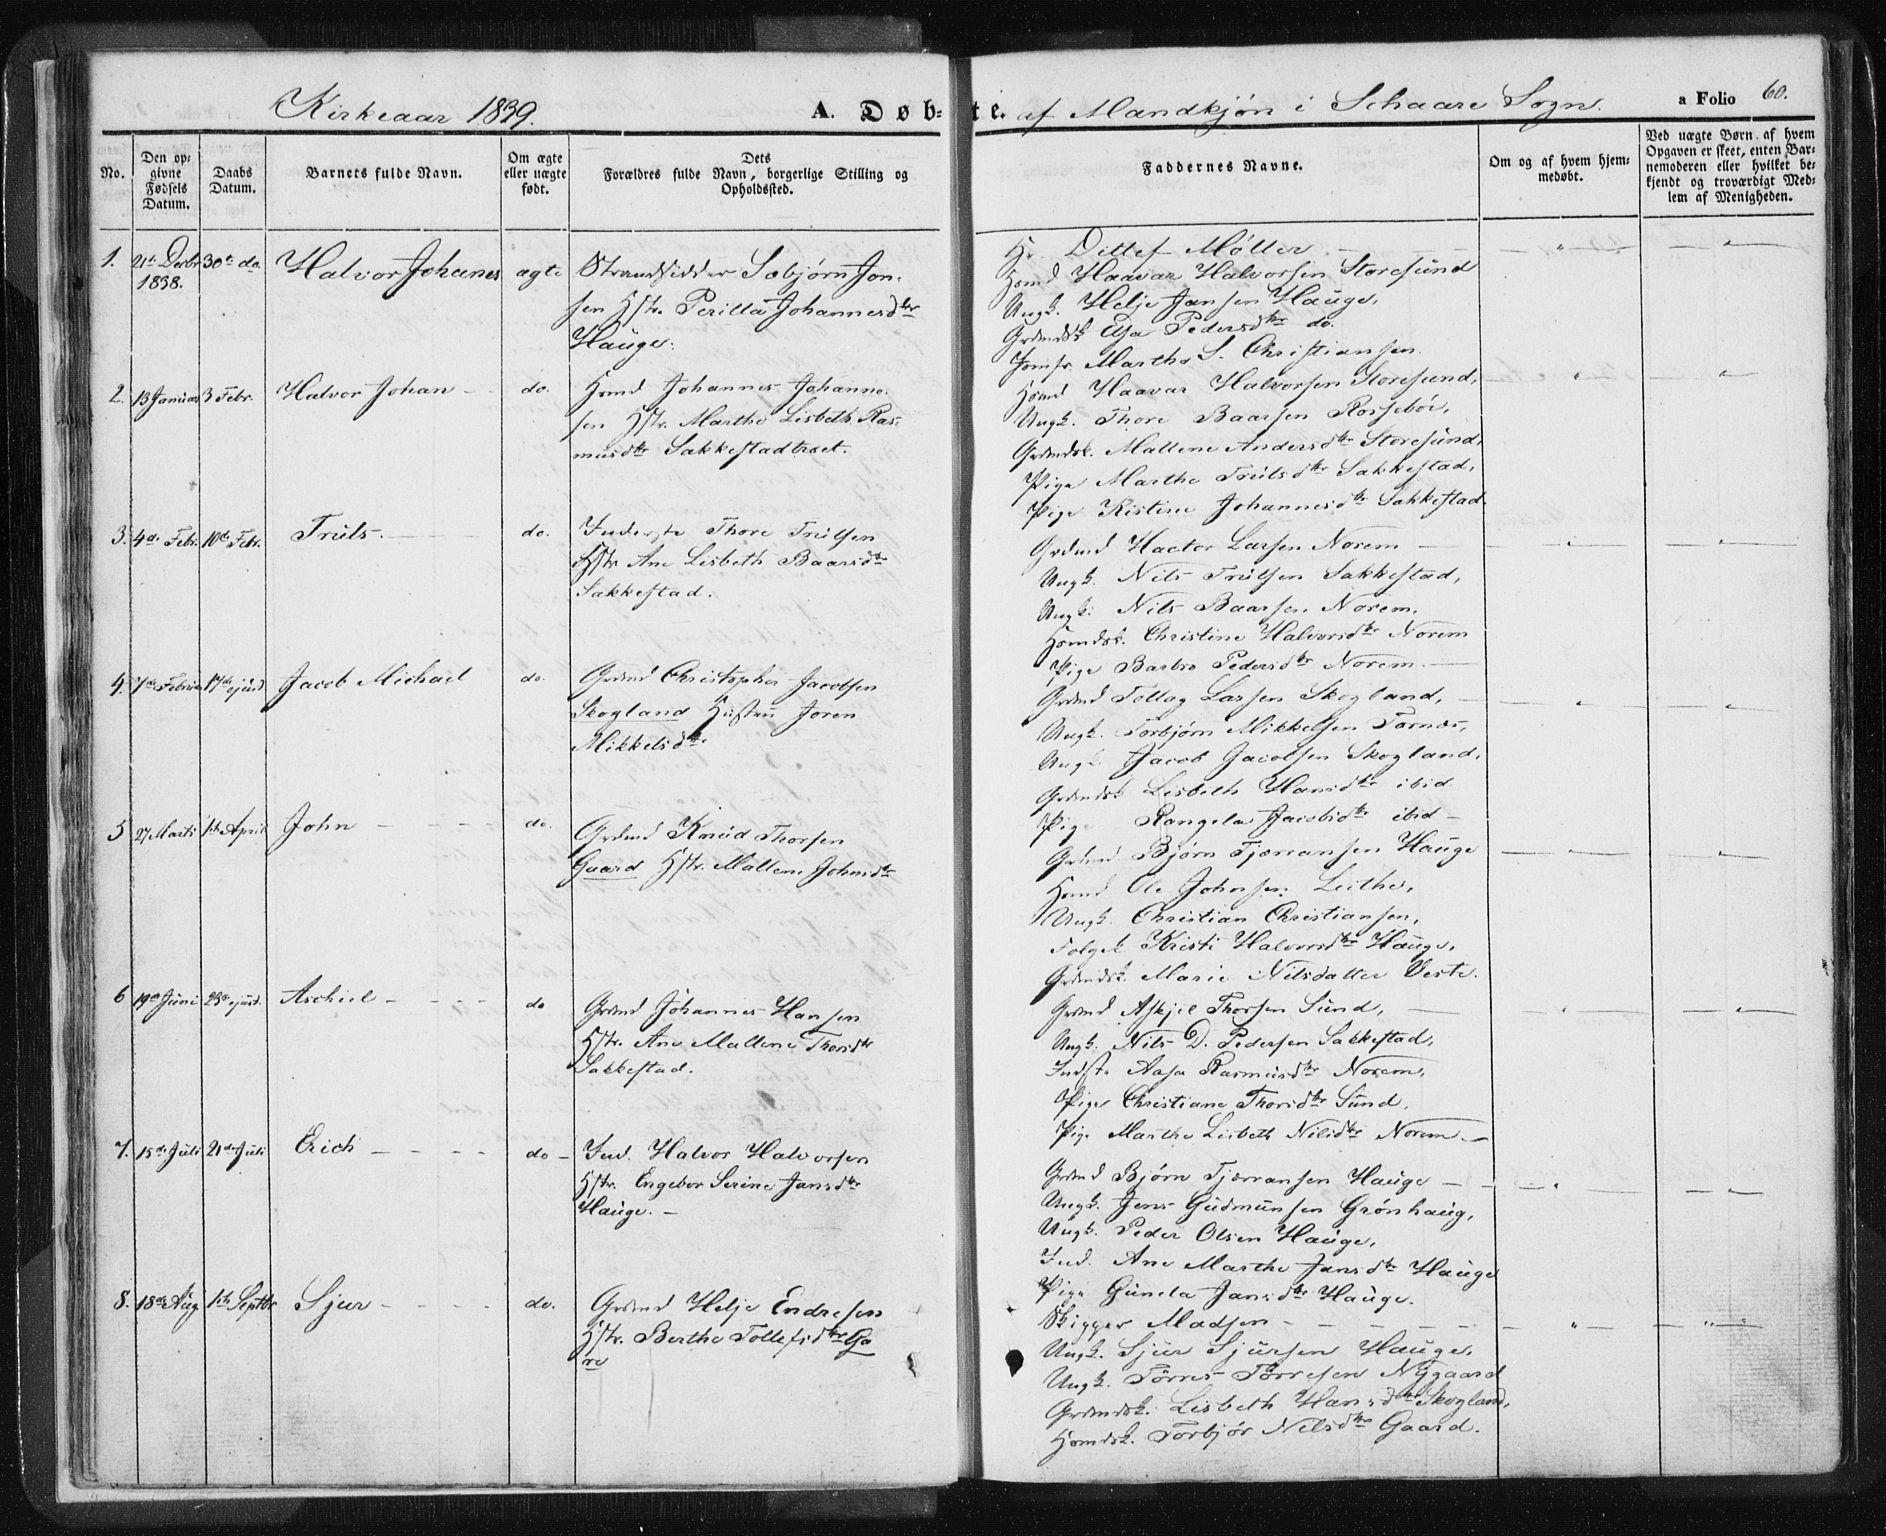 Kirkeaar 1839.
A. Døb=
te. af Mandkjøn i Schaare Sogn.
a Folio 60.
No.
Den op=
givne
Fødsels
Datum.
Daabs
Datum.
Barnets fulde Navn.
Om ægte
eller uægte
født.
Dets
Forældres fulde Navn, borgerlige Stilling og
Opholdssted.
Faddernes Navne.
Om og af hvem hjem=
medøbt.
Ved uægte Børn, af hvem
Opgaven er skeet, enten Bar=
nemoderen eller hvilket be=
kjendt og troværdigt Med=
lem af Menigheden.
1. 21de Decbr 1838. 30te do. Halvor Johanes ægte
Strandsidder Sæbjørn Jon-
sen Hstr. Perilla Johannesdtr
Hauge.
Hr. Ditlef Møller
Hsmd Haavar Halvorsen Storesund
Ungk. Helje Jansen Hauge,
Grdmdsk. Elsa Pedersdtr do.
Jomfr. Marthe S. Christiansen.
2. 13 Januar 3 Febr. Halvor Johan do.
Hsmd Johannes Johanne-
sen Hstr. Marthe Lisbeth Ras-
musdtr Sakkestadtræet.
Hsmd Haavar Halvorsen Storesund,
Ungk. Thore Baarsen Rossebøe,
Grdmdsk. Mallene Andersdtr Storesund,
Pige Marthe Trulsdtr Sakkestad,
Pige Kistine Johannesdtr Sakkestad
3. 4de Febr. 10de Febr. Truls. do.
Inderste Thore Trulsen
Hstr Ane Lisbeth Baarsdtr
Sakkestad.
Grdmd Hactor Larsen Norem
Ungk. Nils Trulsen Sakkestad,
Ungk. Nils Baarsen Norem.
Hsmdsk. Christine Halvorsdtr Norem
Pige Barbro Pedersdtr Norem.
4. 7de Februar 17de ejusd Jacob Michael do.
Grdmd Christopher Jacobsen
Skogland Hustru Joren
Mikkelsdtr
Grdmd Tollag Larsen Skogland,
Ungk. Torbjørn Mikkelsen Tornæs,
Ungk. Jacob Jacobsen Skogland,
Grdmdsk Lisbeth Hansdtr ibid
Pige Rangela Jacobsdtr ibid
5 27 Marts 1ste April John do.
Grdmd Knud Thorsen
Gaard Hstr. Mallene Johnsdtr
Grdmd Bjørn Tjærransen Hauge
Hsmd Ole Johnsen Leithe,
Ungk. Christian Christiansen,
Folgek Kristi Halvorsdtr Hauge,
Grdmdsk. Marie Nilsdatter Veste.
6 19de Juni 23de ejusd. Aschiel do
Grdmd Johannes Hansen
Hstr. Ane Mallene Thorsdtr
Sakkestad.
Grdmd Askjel Thorsen Sund,
Ungk. Nils D. Pedersen Sakkestad,
Indste Aasa Rasmusdtr Norem,
Pige Christiane Thorsdtr Sund,
Pige Marthe Lisbeth Nilsdtr Norem
7. 15de Juli 21de Juli Erich do
Ind. Halvor Halvorsen
Hstr. Engebor Serine Jansdtr
Hauge.
Grdmd Bjørn Tjærransen Hauge
Ungk. Jens Gudmunsen Grønhaug,
Ungk. Peder Olsen Hauge,
Ind. Ane Marthe Jansdtr Hauge
Pige Gunela Jansdtr Hauge.
8. 18de Aug 1ste Septbr Sjur do.
Grdmd Helje Endresen
Hstr. Berthe Tollefsdtr Ga
re
Skipper Madsen
Ungk. Sjur Sjursen Hauge,
Ungk. Tørres Tørresen Nygaard
Grdmdsk. Lisbeth Hansdtr Skogland,
Hsmdsk. Torbjør Nilsdtr Gaard.